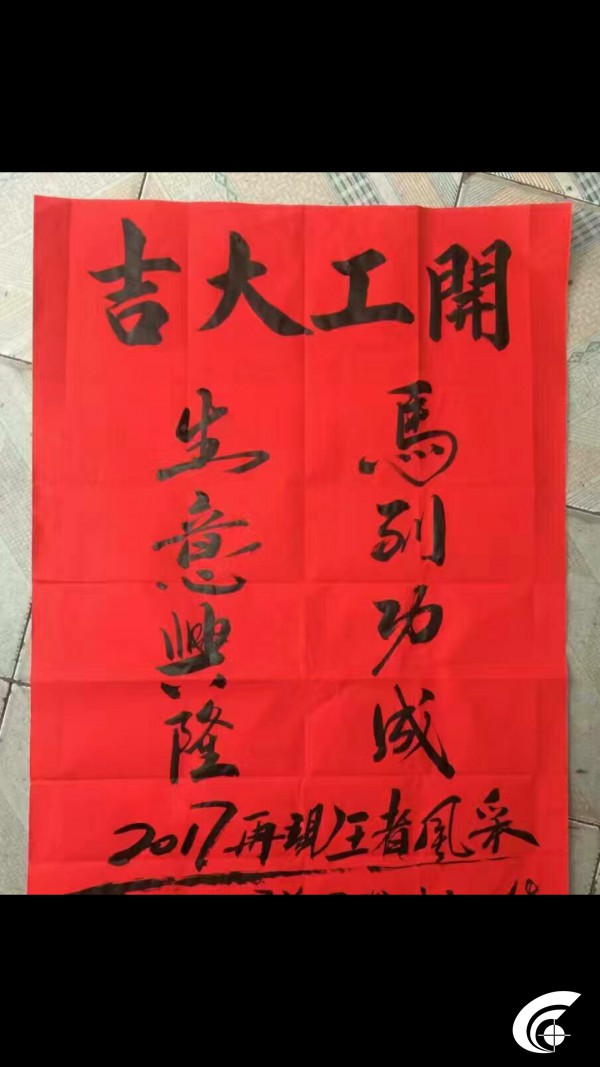 開工大吉
馬到功成
生意興隆
2017再現王者風采